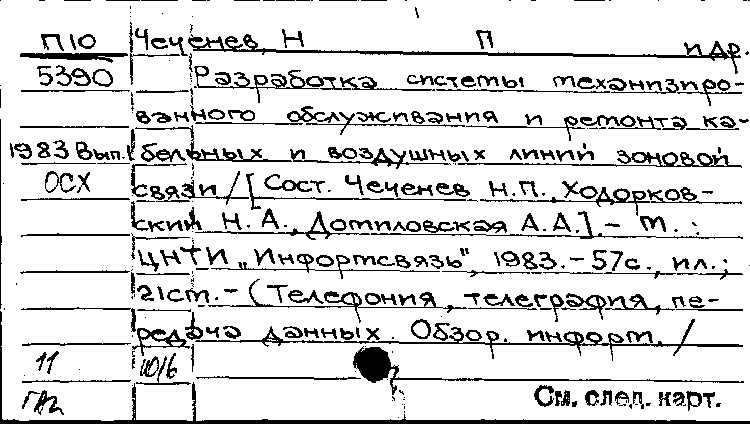 П10 Чеченев, Н П и др.
5390 Разработка системы механизиро-
ванного обслуживания и ремонта ка-
1983 Вып.1 бельных и воздушных линий зоновой
ОСХ связи / [Сост. Чеченев Н.П., Ходорков-
ский Н.А., Домиловская А.А.]. - М. :
ЦНТИ „Информсвязь", 1983. - 57с., ил.;
21см. - (Телефония, телеграфия, пе-
редача данных Обзор. информ. /
11
См. след. карт.